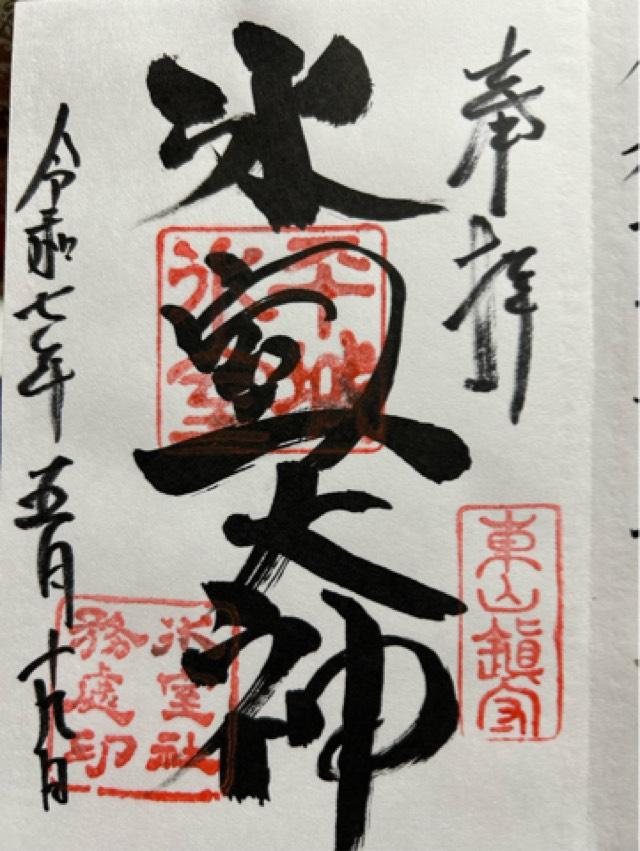 奉拝
氷室大神
平城
氷室
東山鎮守
氷室社
務處印
令和七年五月十九日